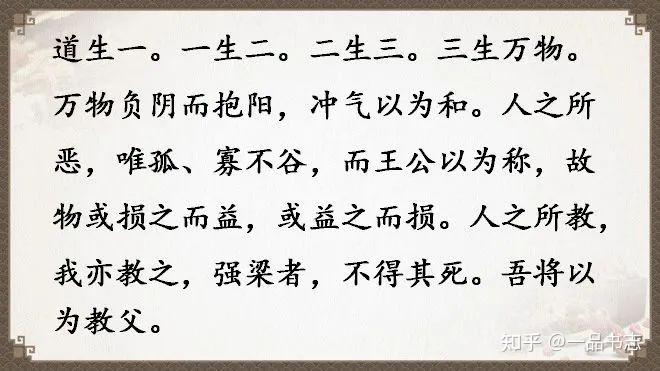 道生一。一生二。二生三。三生万物。
万物负阴而抱阳，冲气以为和。人之所
恶，唯孤、寡不谷，而王公以为称，故
物或损之而益，或益之而损。人之所教，
我亦教之，强梁者，不得其死。吾将以
为教父。
知乎 @一品书志